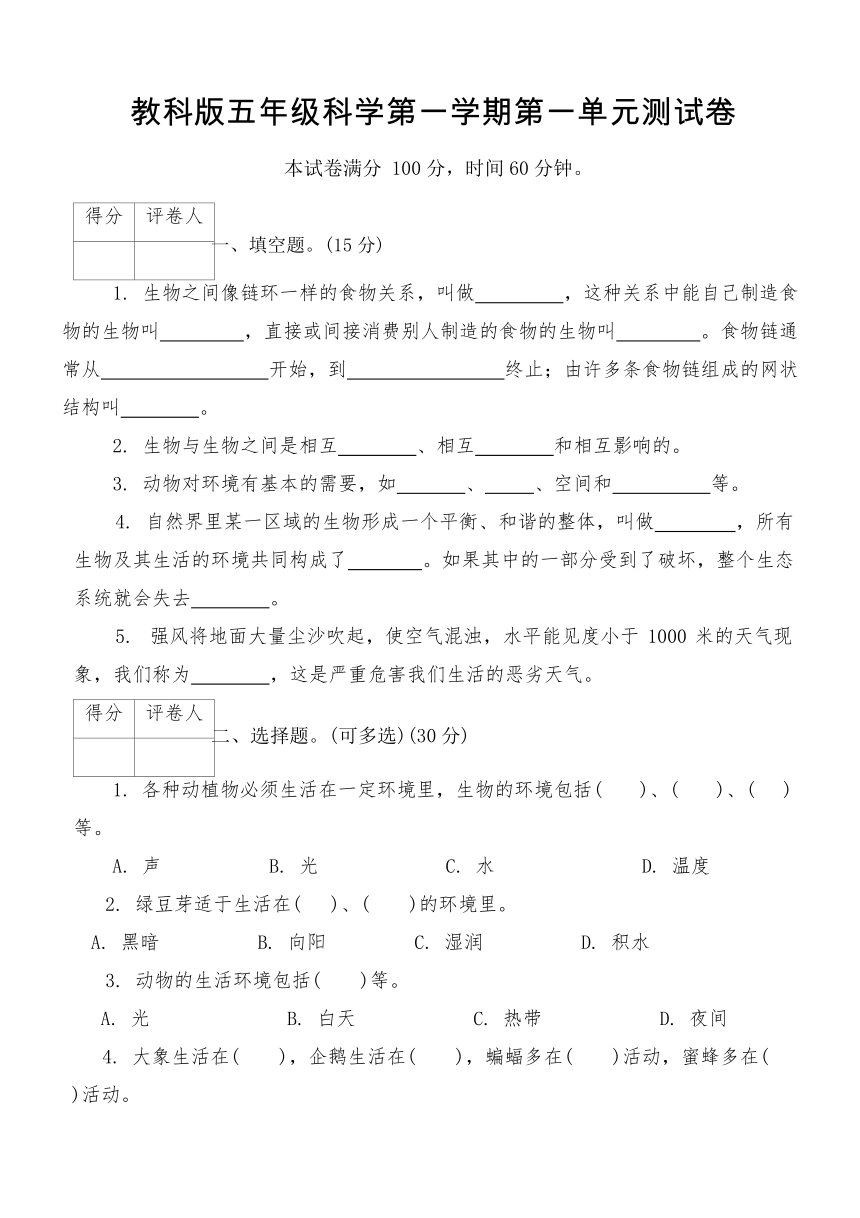 教科版五年级科学第一学期第一单元测试卷
本试卷满分 100分，时间60分钟。
得分 评卷人
一、填空题。(15分)
1. 生物之间像链环一样的食物关系，叫做________，这种关系中能自己制造食
物的生物叫________，直接或间接消费别人制造的食物的生物叫________。食物链通
常从________________开始，到________________终止；由许多条食物链组成的网状
结构叫________。
2. 生物与生物之间是相互________、相互________和相互影响的。
3. 动物对环境有基本的需要，如_______、_____、空间和__________等。
4. 自然界里某一区域的生物形成一个平衡、和谐的整体，叫做________，所有
生物及其生活的环境共同构成了________。如果其中的一部分受到了破坏，整个生态
系统就会失去________。
5. 强风将地面大量尘沙吹起，使空气混浊，水平能见度小于 1000 米的天气现
象，我们称为________，这是严重危害我们生活的恶劣天气。
得分 评卷人
二、选择题。(可多选)(30分)
1. 各种动植物必须生活在一定环境里，生物的环境包括( )、( )、( )
等。
A. 声 B. 光 C. 水 D. 温度
2. 绿豆芽适于生活在( )、( )的环境里。
A. 黑暗 B. 向阳 C. 湿润 D. 积水
3. 动物的生活环境包括( )等。
A. 光 B. 白天 C. 热带 D. 夜间
4. 大象生活在( )，企鹅生活在( )，蝙蝠多在( )活动，蜜蜂多在(
)活动。